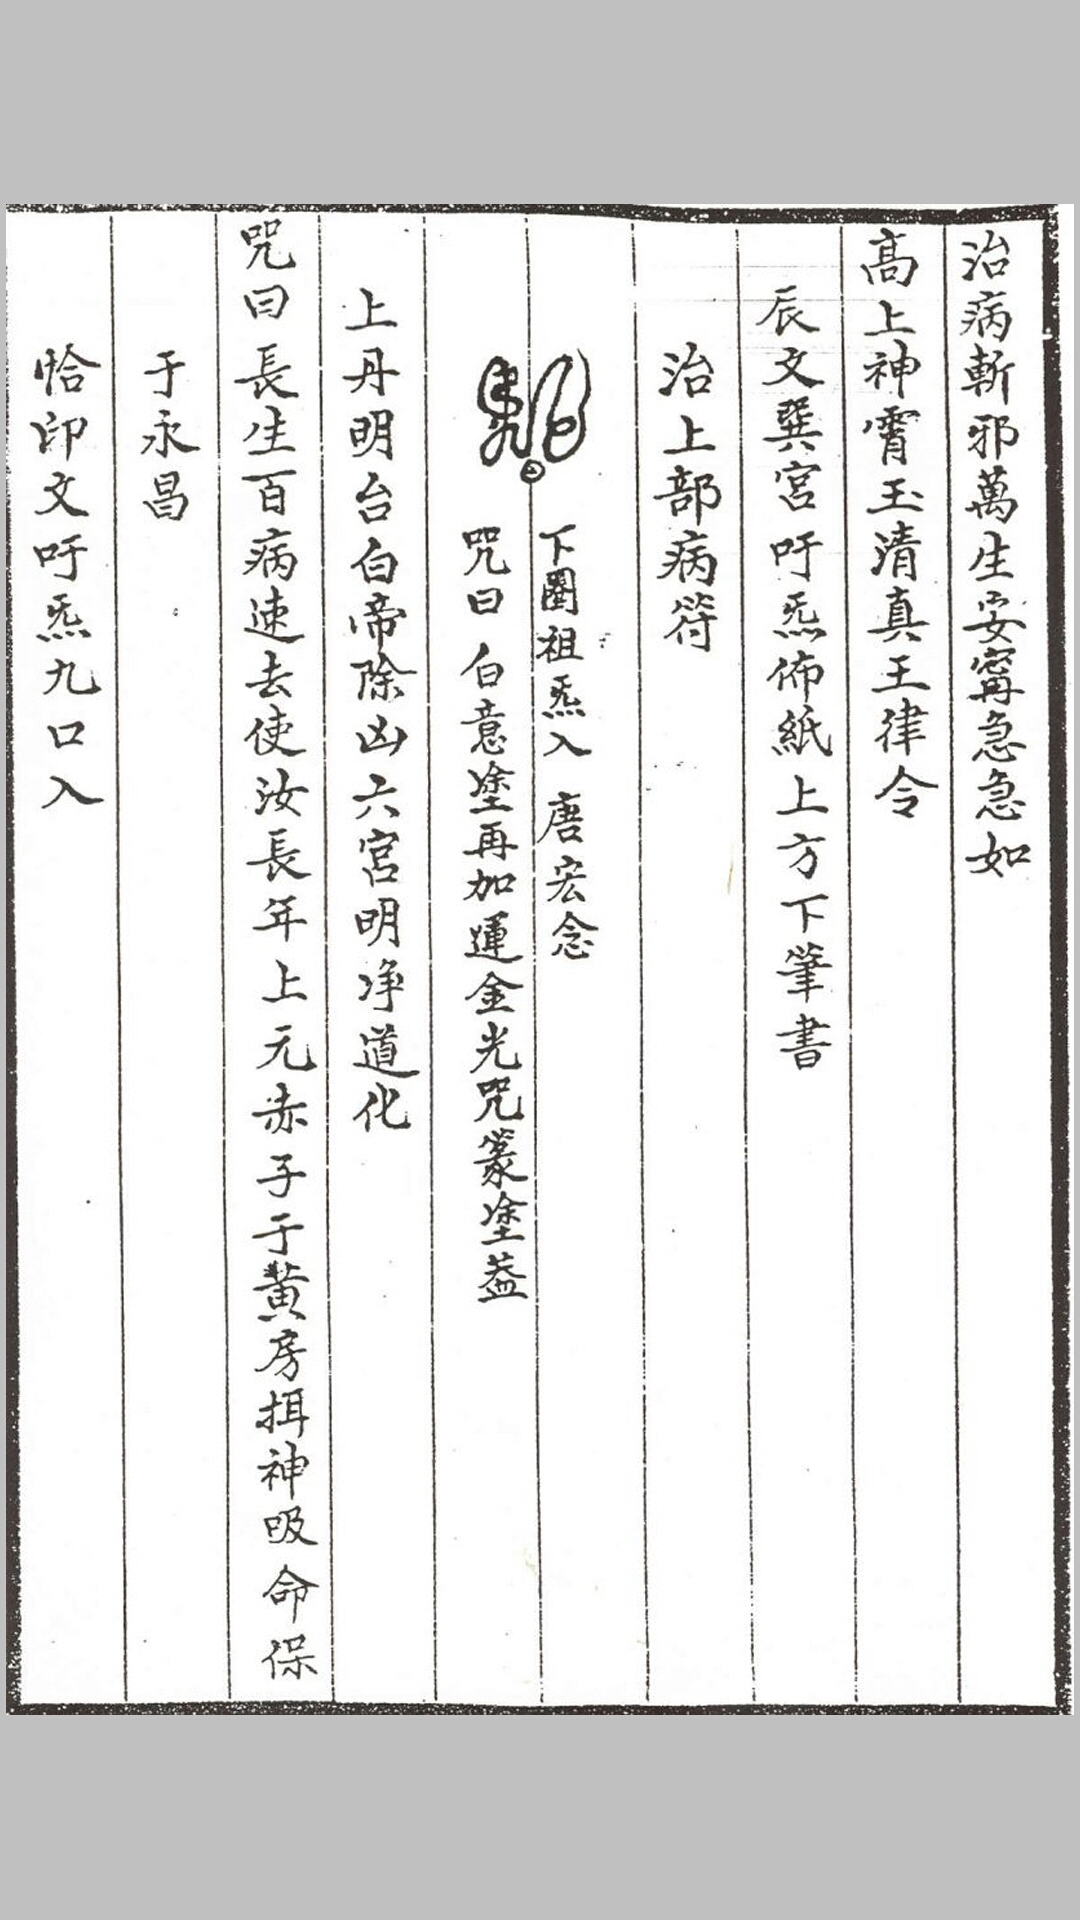 治病斬邪萬生安寗急急如
高上神霄玉清真王律令
辰文巽宮吁炁佈紙上方下筆書
治上部病符
下圈祖炁入 唐宏念
咒曰 白意塗再加運金光咒篆塗益
上丹明台白帝除凶六宮明净道化
咒曰 長生百病速去使汝長年上元赤子于黄房揖神吸命保
于永昌
恰印文吁炁九口入